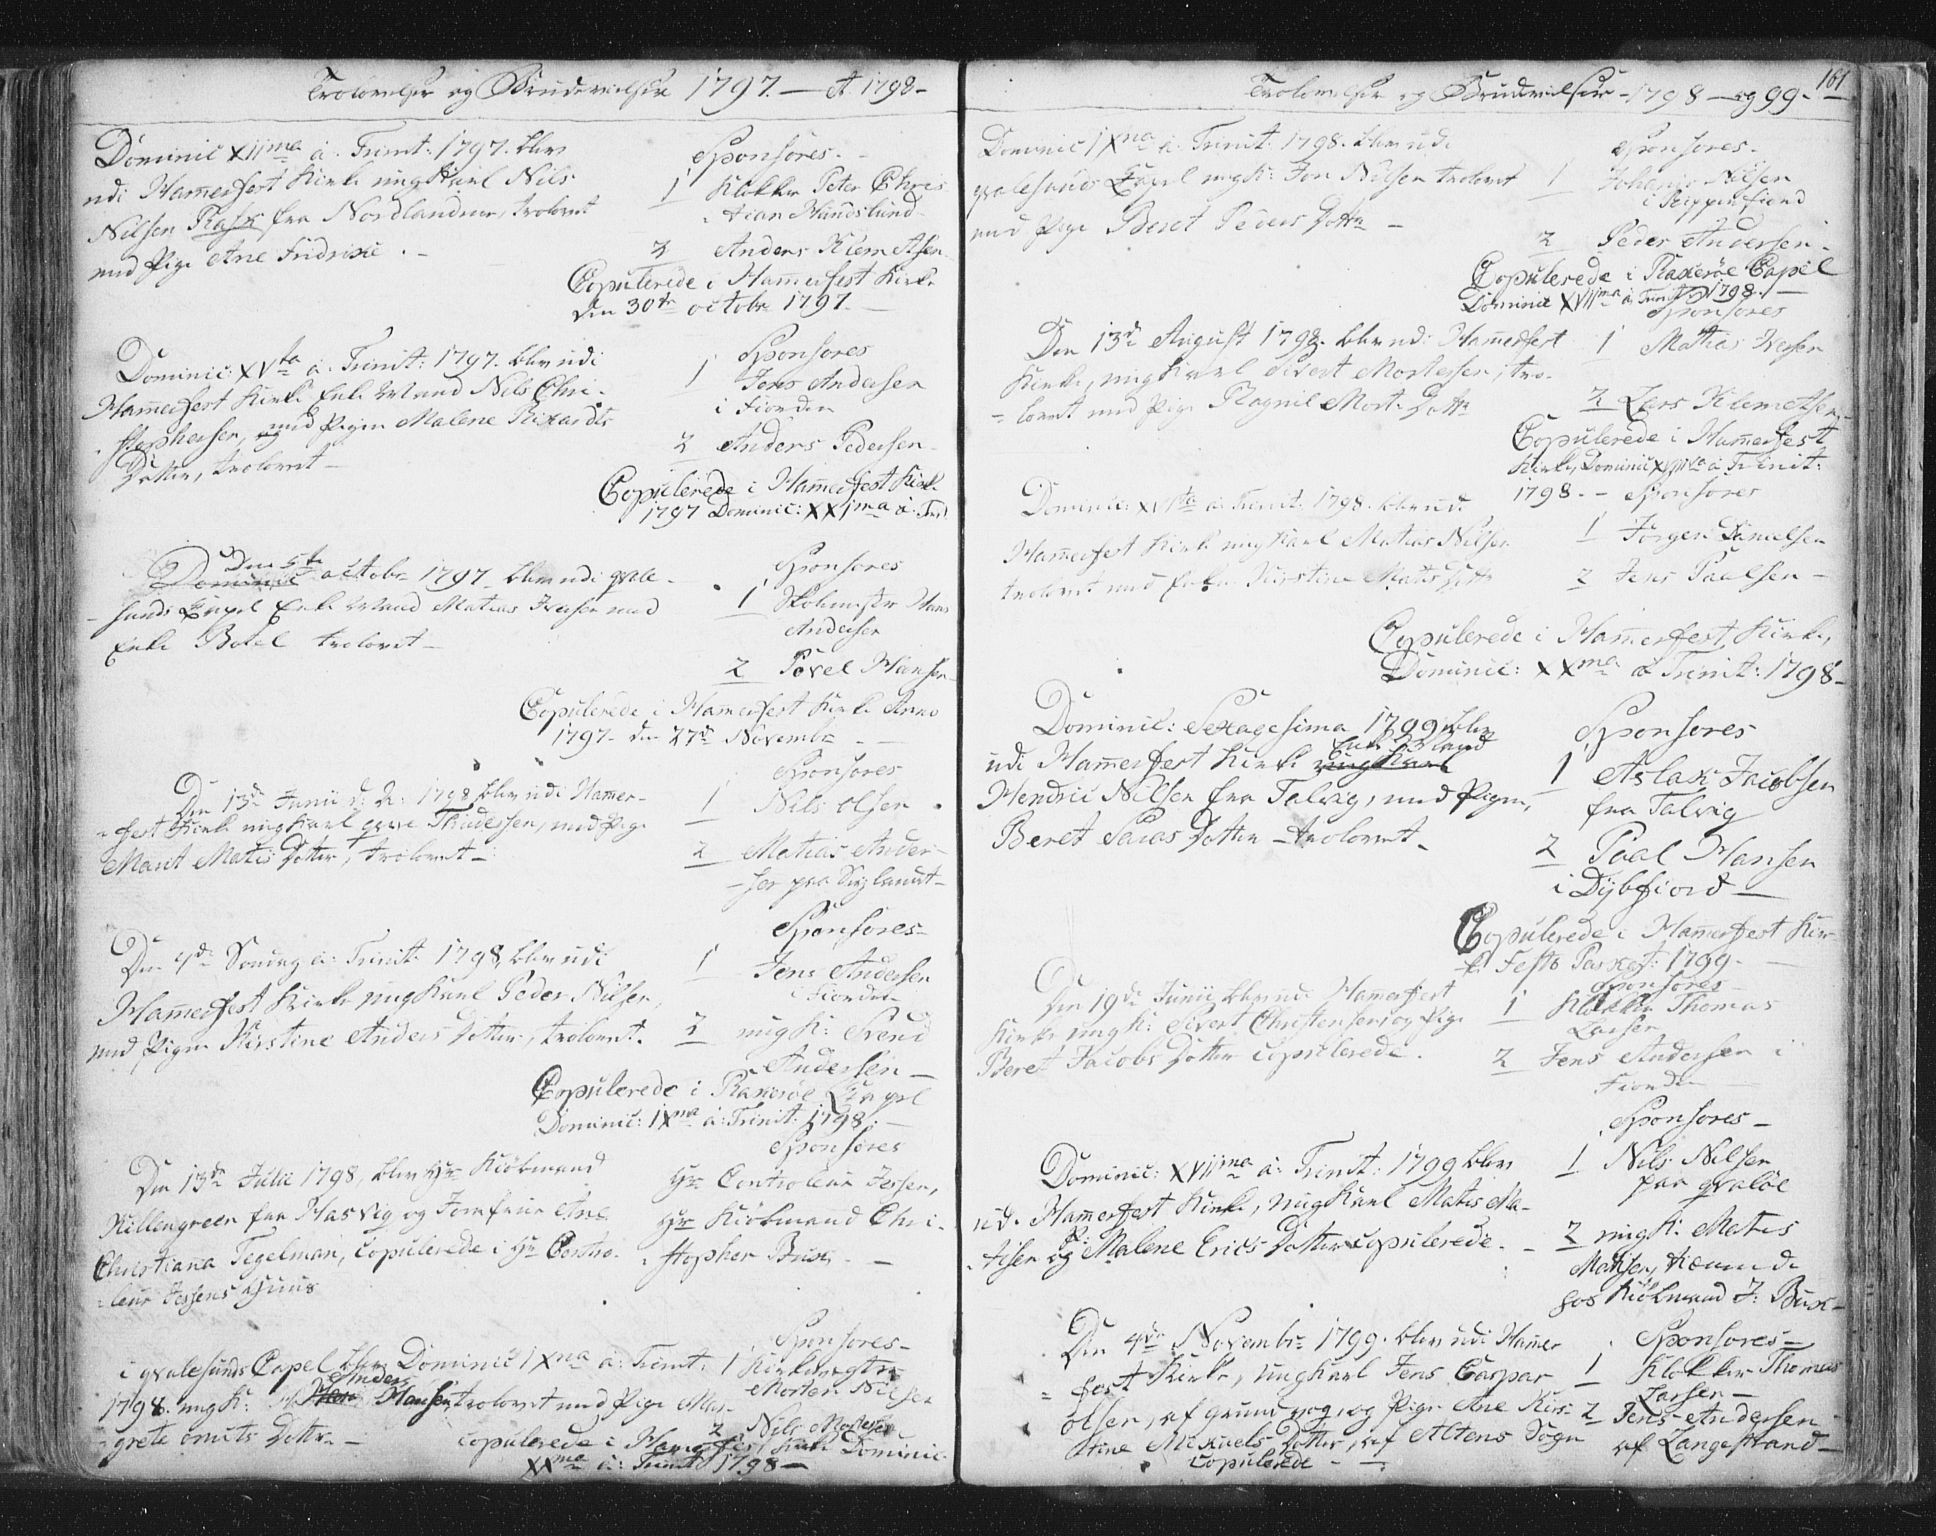 Trolovelser og Brudevielser 1797 — et 1798 –
Dominic XIIma a. Trinit: 1797. blev
udi Hammerfest Kirke ungkarl Nils
Nilsen Rask fra Nordlandene, trolovet
med Pige Ane Fridrike . –
Sponsores. -
1 Klokker Peter Chris
tian Mundslund
2 Anders Klemetsen
Copulerede i Hammerfest Kirke
den 30te octobr 1797. —
Dominic: XVta a. Trinit: 1797. blev udi
Hammerfest Kirke Enke Mand Nils Chri-
stophersen, med Pigen Malene Rikards
Datter, trolovet –
Sponsores
1 Jens Andersen
i Fiorden
2 Anders Pedersen
Copulerede i Hammerfest Kirke
1797 Dominic: XXIma a. Trit
Den 5te
Dominic octobr 1797 blev udi qvale-
sunds Capel Enke Mand Matias Iversen med
Enke Botel trolovet –
Sponsores
1 Skolemester Hans
Andersen
2 Povel Hansen
Copulerede i Hamerfest Kirke Anno
1797. den 27de Novembr –
Den 13de Junii 1798 blev udi Hamer-
fest Kirke ungkarl Thudessen, med Pige
Marit Matis Datter, trolovet –
Sponsores
1 Nils Olsen
2 Matias Ander-
sen paa
Den 7de Søndag a. Trinit. 1798, blev udi
Hammerfest Kirke ungkarl Peder Nilsen,
med Pigen Kirstine Anders Datter, trolovet.
Sponsores –
1 Jens Andersen
i Fiorden
2 ungk: Svend
Andersen –
Copulerede i Raxeröe Capel
Dominic: IXma a: Trinit: 1798. –
Den 13de Julii 1798, blev Hr Kiöbmand
Killengreen fra Hasvig og Jomfrue Ane
Christiana Tegelman, copulerede i Hr Contro-
leur Jessens Huus
Sponsores
Hr Controleur Jessen,
Hr Kiöbmand Chri-
stopher Buck. –
i qvalesunds Capel blev Dominic IXna a: Trinit:
1798. ungk: Anders Hansen trolovet med Pige Mar-
grete Datter –
Sponsores –
1 Kirkevergtr
Morten Nilsen
2 Nils Mortensen
copulerede i Hamerfest Kirke Dominic
XXma a: Trinit 1798 –
Trolovelser og Brudevielser – 1798 – og 99. –
161
Dominic IXna a. Trinit: 1798. blev udi
qvalesunds Capel ungk: Jon Nilsen trolovet
med Pige Beret Peders Datter –
Sponsores.
1 Johanis Nilsen
i Reppenfiord
2 Peder Andersen.
Copulerede i Raxeröe Capel
Dominic XVIIma a Trinit: 1798. –
Den 13de August 1798. blev udi Hamerfest
Kirke, ungkarl Sivert Mortensen, tro-
lovet med Pige Ragnil Mort: Datter
Sponsores
1 Matias Iversen
2 Lars Klemetsen –
Copulerede i Hamerfest
Kirke, Dominic a Trinit:
1798. –
Dominic: XVIta a. Trinit. 1798. blev udi
Hamerfest Kirke ungkarl Matias Nilsen
trolovet med Kirstine Matis Datter
Sponsores
1 Jörgen Danielsen
2 Jens Paalsen –
Copulerede i Hamerfest Kirke,
Dominic: XXma a Trinit: 1798 –
Dominic: Sexagesima 1799 blev
udi Hamerfest Kirke Enke Mand ungkarl
Hendric Nilsen fra Talvig, med Pigen,
Beret Saras Datter – trolovet –
Sponsores
1 Aslak Jacobsen
fra Talvig
2 Paal Hansen
i Dybfiord –
Copulerede i Hamerfest Kir-
ke Festo Pasket: 1799. –
Den 19de Junii blev udi Hamerfest
Kirke ungk: Sivert Christensen, og Pige
Beret Jacobs Datter copulerede.
Sponsores –
1 Klokker Thomas
Larsen
2 Jens Andersen i
Fiorden
Dominic: XVIIma a: Trinit: 1799 blev
udi Hamerfest Kirke, ungkarl Matis Ma-
tisen og P: Malene Erics Datter copulerede. –
Sponsores –
1 Nils Nilsen
paa qvalöe
2 ungk: Matis
Matisen, tienende
hos Kiöbmand J: Buck –
Den 4de Novembr 1799. blev udi Hamer
fest Kirke, ungkarl Jens Caspar
Olsen, af og Pige Ane Kir-
stine Mickuels Datter, af Altens Sogn
copulerede – –
Sponsores –
1 Klokker Thomas
Larsen –
2 Jens Andersen
af Langestrand –